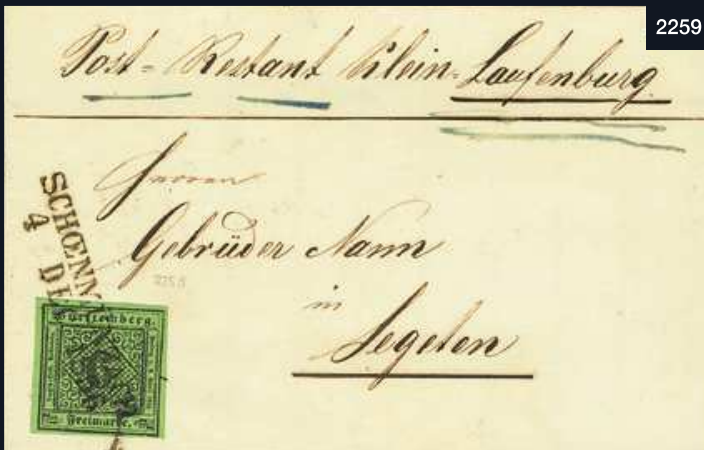 2259
Post-Restant Klein-Laufenburg
Herren
Gebrüder Nann
in
Segeten
SCHŒNM
4 DE
Württemberg
Freimarke.